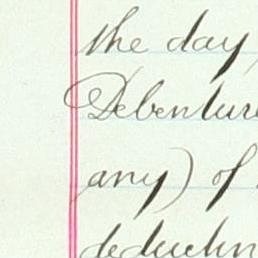 the day
Debenture
any) of
deductin